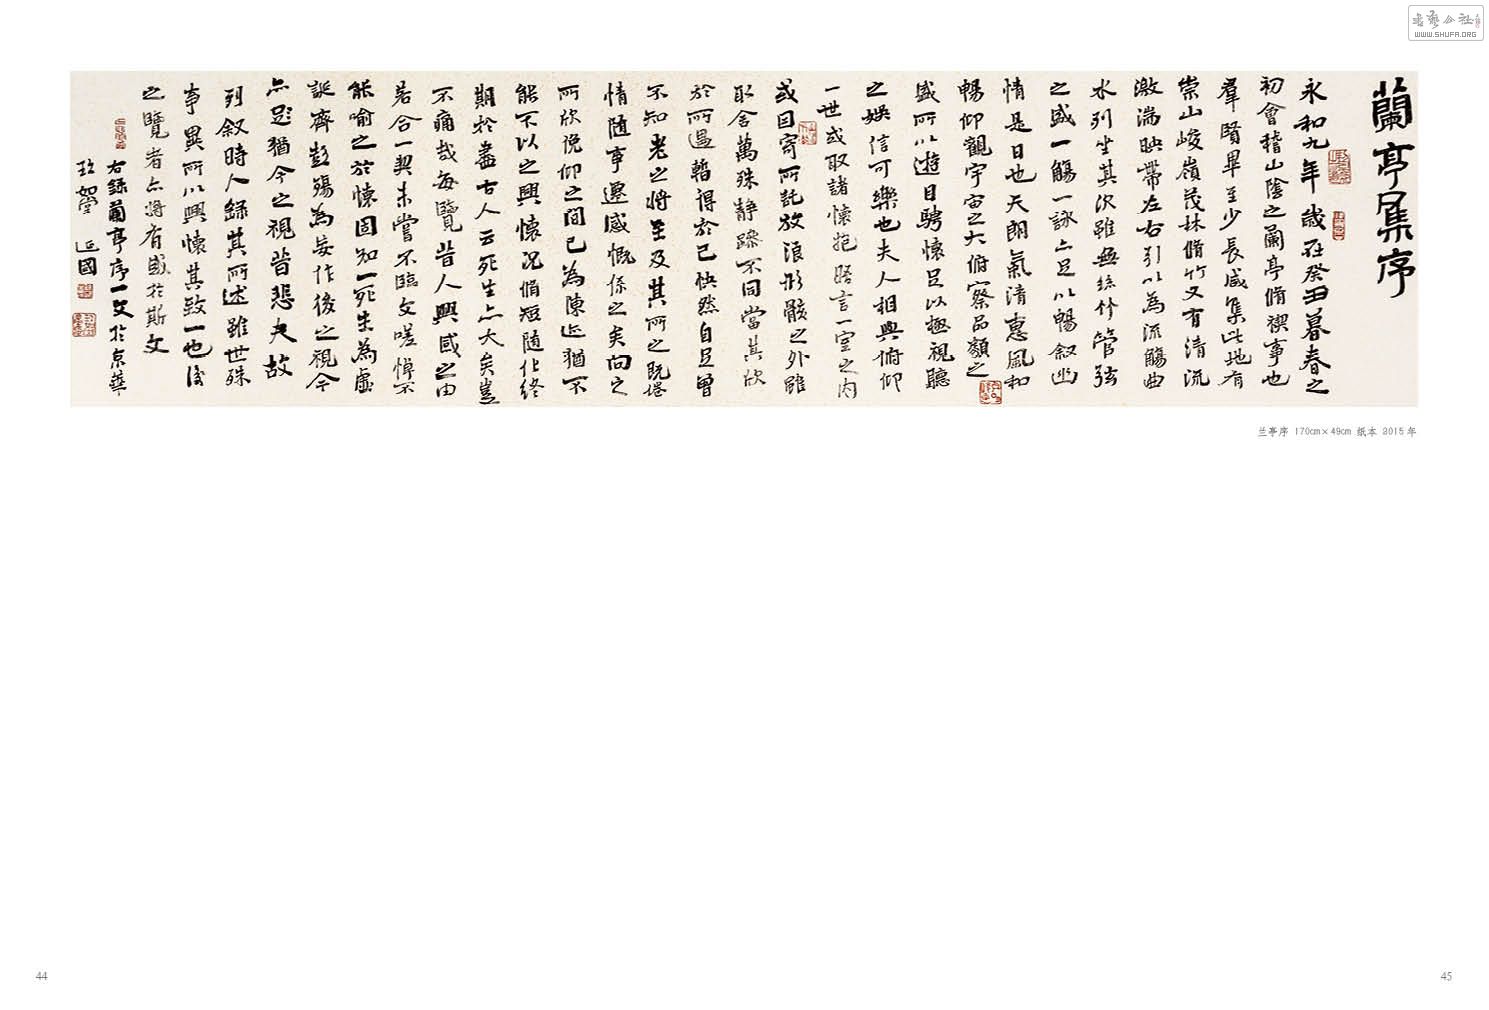 蘭亭集序
永和九年歲在癸丑暮春之
初會稽山陰之蘭亭脩禊事也
羣賢畢至少長咸集此地有
崇山峻嶺茂林脩竹又有清流
激湍映帶左右引以為流觴曲
水列坐其次雖無絲竹管弦
之盛一觴一詠亦足以暢叙幽
情是日也天朗氣清惠風和
暢仰觀宇宙之大俯察品類之
盛所以遊目騁懷足以極視聽
之娛信可樂也夫人相與俯仰
一世或取諸懷抱晤言一室之内
或因寄所託放浪形骸之外雖
取舍萬殊靜躁不同當其欣
於所遇暫得於己快然自足曾
不知老之將至及其所之既倦
情随事遷感慨係之矣向之
所欣俛仰之間已為陳迹猶不
能不以之興懷況脩短随化終
期於盡古人云死生亦大矣豈
不痛哉每覽昔人興感之由
若合一契未嘗不臨文嗟悼不
能喻之於懷固知一死生為虛
誕齊彭殤為妄作後之視今
亦足猶今之視昔悲夫故
列叙時人錄其所述雖世殊
事異所以興懷其致一也後
之覽者亦將有感於斯文
右錄蘭亭序一文於京華
延國
兰亭序 170cm×49cm 纸本 2015年
44
45
WWW.SHUFA.ORG